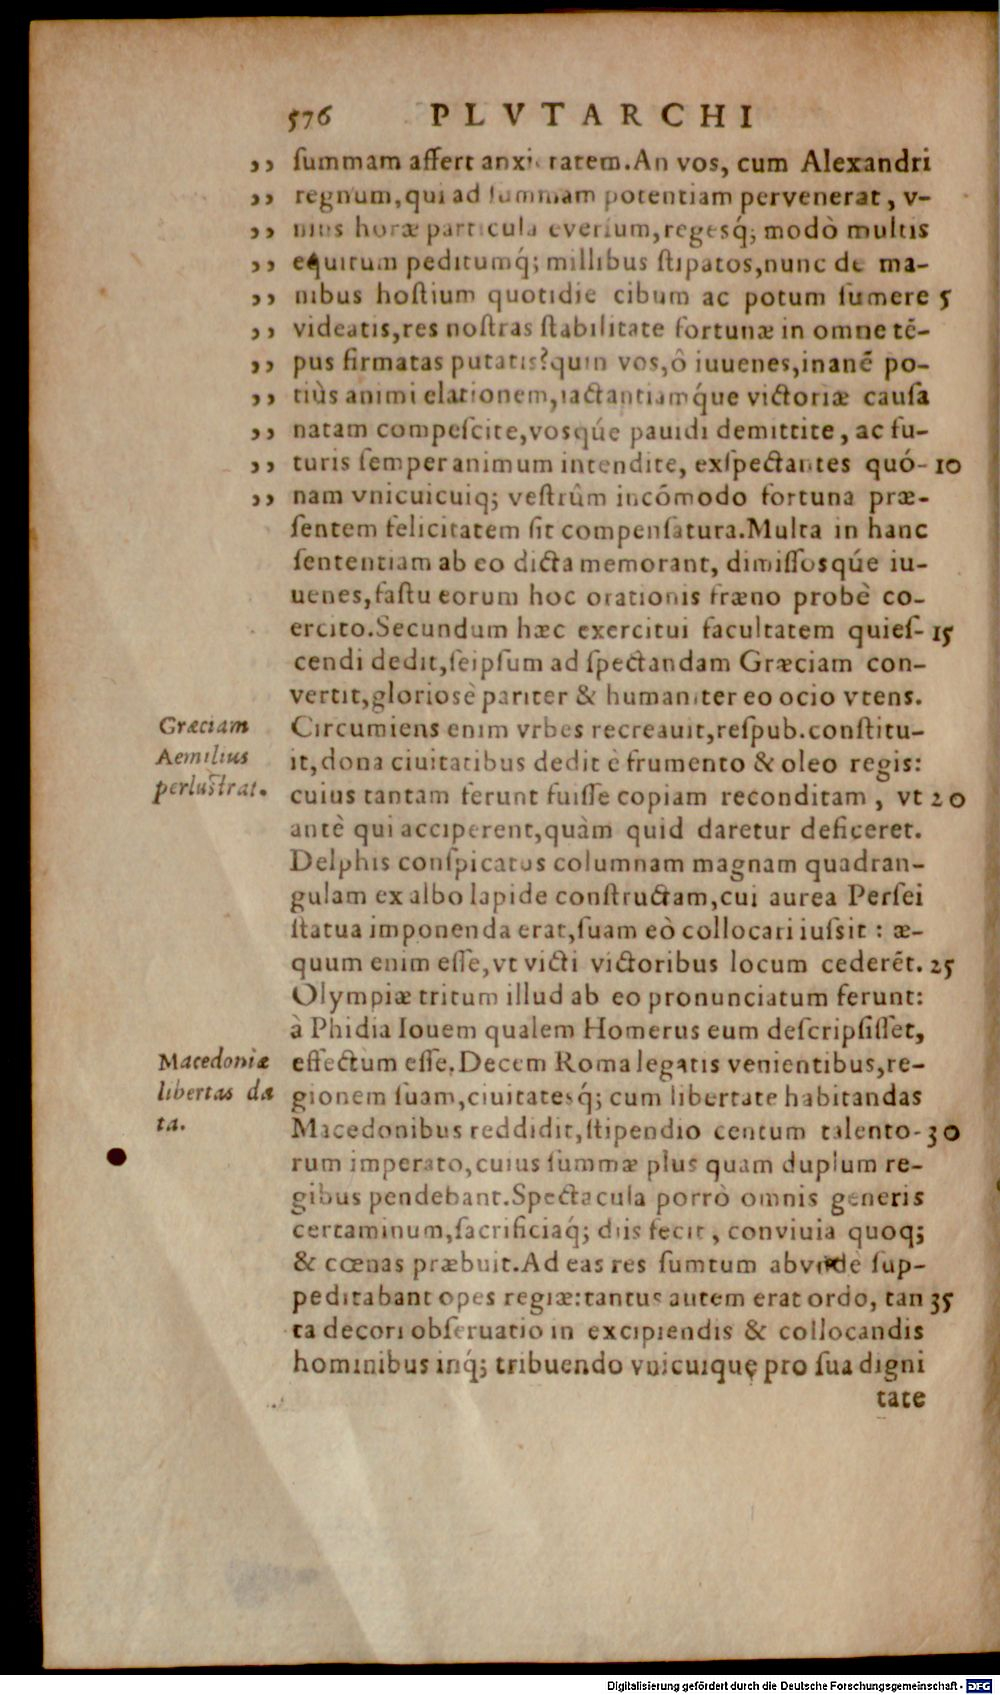 576 PLVTARCHI
,, ſummam affert anxi tatem. An vos, cum Alexandri
,, regnum, qui ad ſummam potentiam pervenerat, v-
,, nius horæ particula everſum, regesq́; modò multis
,, equitum peditumq́; millibus ſtipatos, nunc de ma-
,, nibus hoſtium quotidie cibum ac potum ſumere 5
,, videatis, res noſtras ſtabilitate fortunæ in omne tē-
,, pus firmatas putatis? quin vos, ô iuuenes, inanē po-
,, tiùs animi elationem, iactantiamq́ue victoriæ cauſa
,, natam compeſcite, vosqúe pauidi demittite, ac fu-
,, turis ſemper animum intendite, exſpectantes quó- 10
,, nam vnicuicuiq; veſtrûm incōmodo fortuna præ-
ſentem felicitatem ſit compenſatura. Multa in hanc
ſententiam ab eo dicta memorant, dimiſſosqúe iu-
uenes, faſtu eorum hoc orationis fræno probè co-
ercito. Secundum hæc exercitui facultatem quieſ- 15
cendi dedit, ſeipſum ad ſpectandam Græciam con-
vertit, glorioſè pariter & humaniter eo ocio vtens.
Græciam Circumiens enim vrbes recreauit, reſpub. conſtitu-
Aemilius it, dona ciuitatibus dedit è frumento & oleo regis:
perluſtrat. cuius tantam ferunt fuiſſe copiam reconditam, vt 20
antè qui acciperent, quàm quid daretur deficeret.
Delphis conſpicatus columnam magnam quadran-
gulam ex albo lapide conſtructam, cui aurea Perſei
ſtatua imponenda erat, ſuam eò collocari iuſsit: æ-
quum enim eſſe, vt victi victoribus locum cederēt. 25
Olympiæ tritum illud ab eo pronunciatum ferunt:
à Phidia Iouem qualem Homerus eum deſcripſiſſet,
Macedoniæ effectum eſſe. Decem Roma legatis venientibus, re-
libertas da gionem ſuam, ciuitatesq́; cum libertate habitandas
ta. Macedonibus reddidit, ſtipendio centum talento- 30
rum imperato, cuius ſummæ plus quam duplum re-
gibus pendebant. Spectacula porrò omnis generis
certaminum, ſacrificiaq́; diis fecit, conviuia quoq;
& cœnas præbuit. Ad eas res ſumtum abvndè ſup-
peditabant opes regiæ: tantus autem erat ordo, tan 35
ta decori obſeruatio in excipiendis & collocandis
hominibus inq́; tribuendo vnicuique pro ſua digni
tate
Digitalisierung gefördert durch die Deutsche Forschungsgemeinschaft - DFG